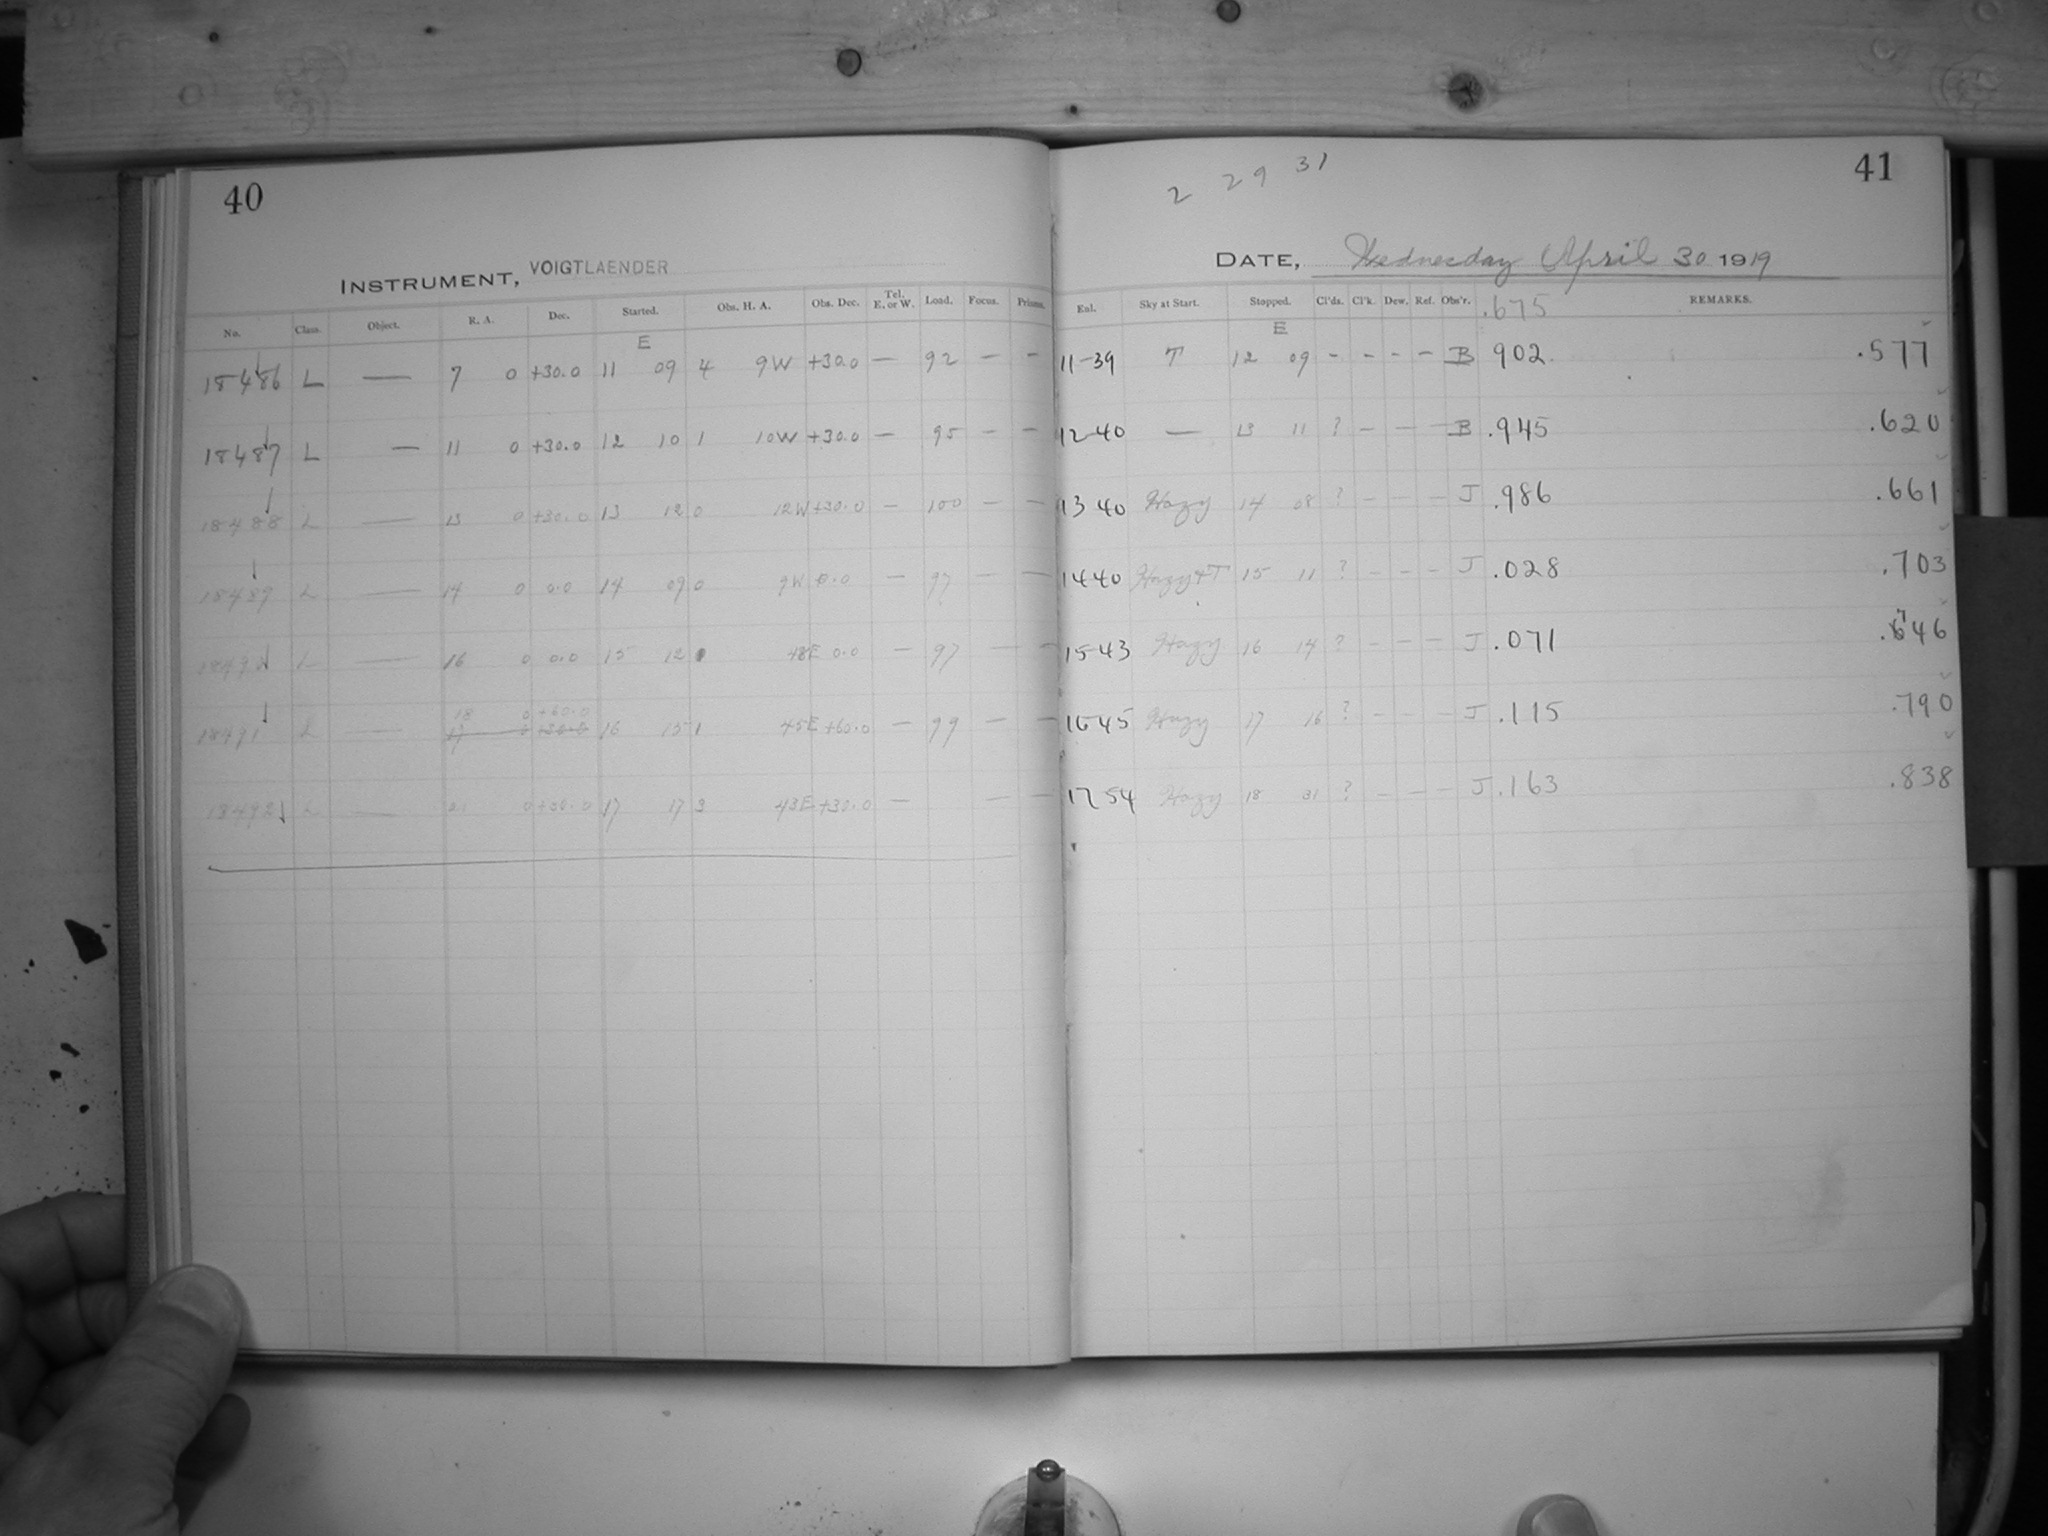 40
INSTRUMENT, VOIGTLAENDER
No. Class. Object. R. A. Dec. Started. Obs. H. A. Obs. Dec. Tel. E. or W. Load. Focus. Prisms.
E
18486 L — 7 0 +30.0 11 09 4 9W +30.0 — 92 — —
18487 L — 11 0 +30.0 12 10 1 10W +30.0 — 95 — —
18488 L — 13 0 +30.0 13 12 0 12W +30.0 — 100 — —
18489 L — 14 0 0.0 14 09 0 9W 0.0 — 97 — —
L — 16 0 0.0 15 12 48E 0.0 — 97 — —
18 0 +60.0
18491 L — 17 0 +30.0 16 15 1 45E +60.0 — 99 — —
18492 L — 21 0 +30.0 17 17 3 43E +30.0 — — —
2 29 31
41
DATE, Wednesday April 30 1919
Exl. Sky at Start. Stopped. Cl'ds. Cl'k. Dew. Ref. Obs'r. REMARKS.
.675
E
11-39 T 12 09 - - - - B 902 .577
12-40 — 13 11 ? - - - B .945 .620
13 40 Hazy 14 08 ? - - - J .986 .661
1440 Hazy+T 15 11 ? - - - J .028 .703
15-43 Hazy 16 14 ? - - - J .071 .746
16-45 Hazy 17 16 ? - - - J .115 .790
17 54 Hazy 18 31 ? - - - J .163 .838